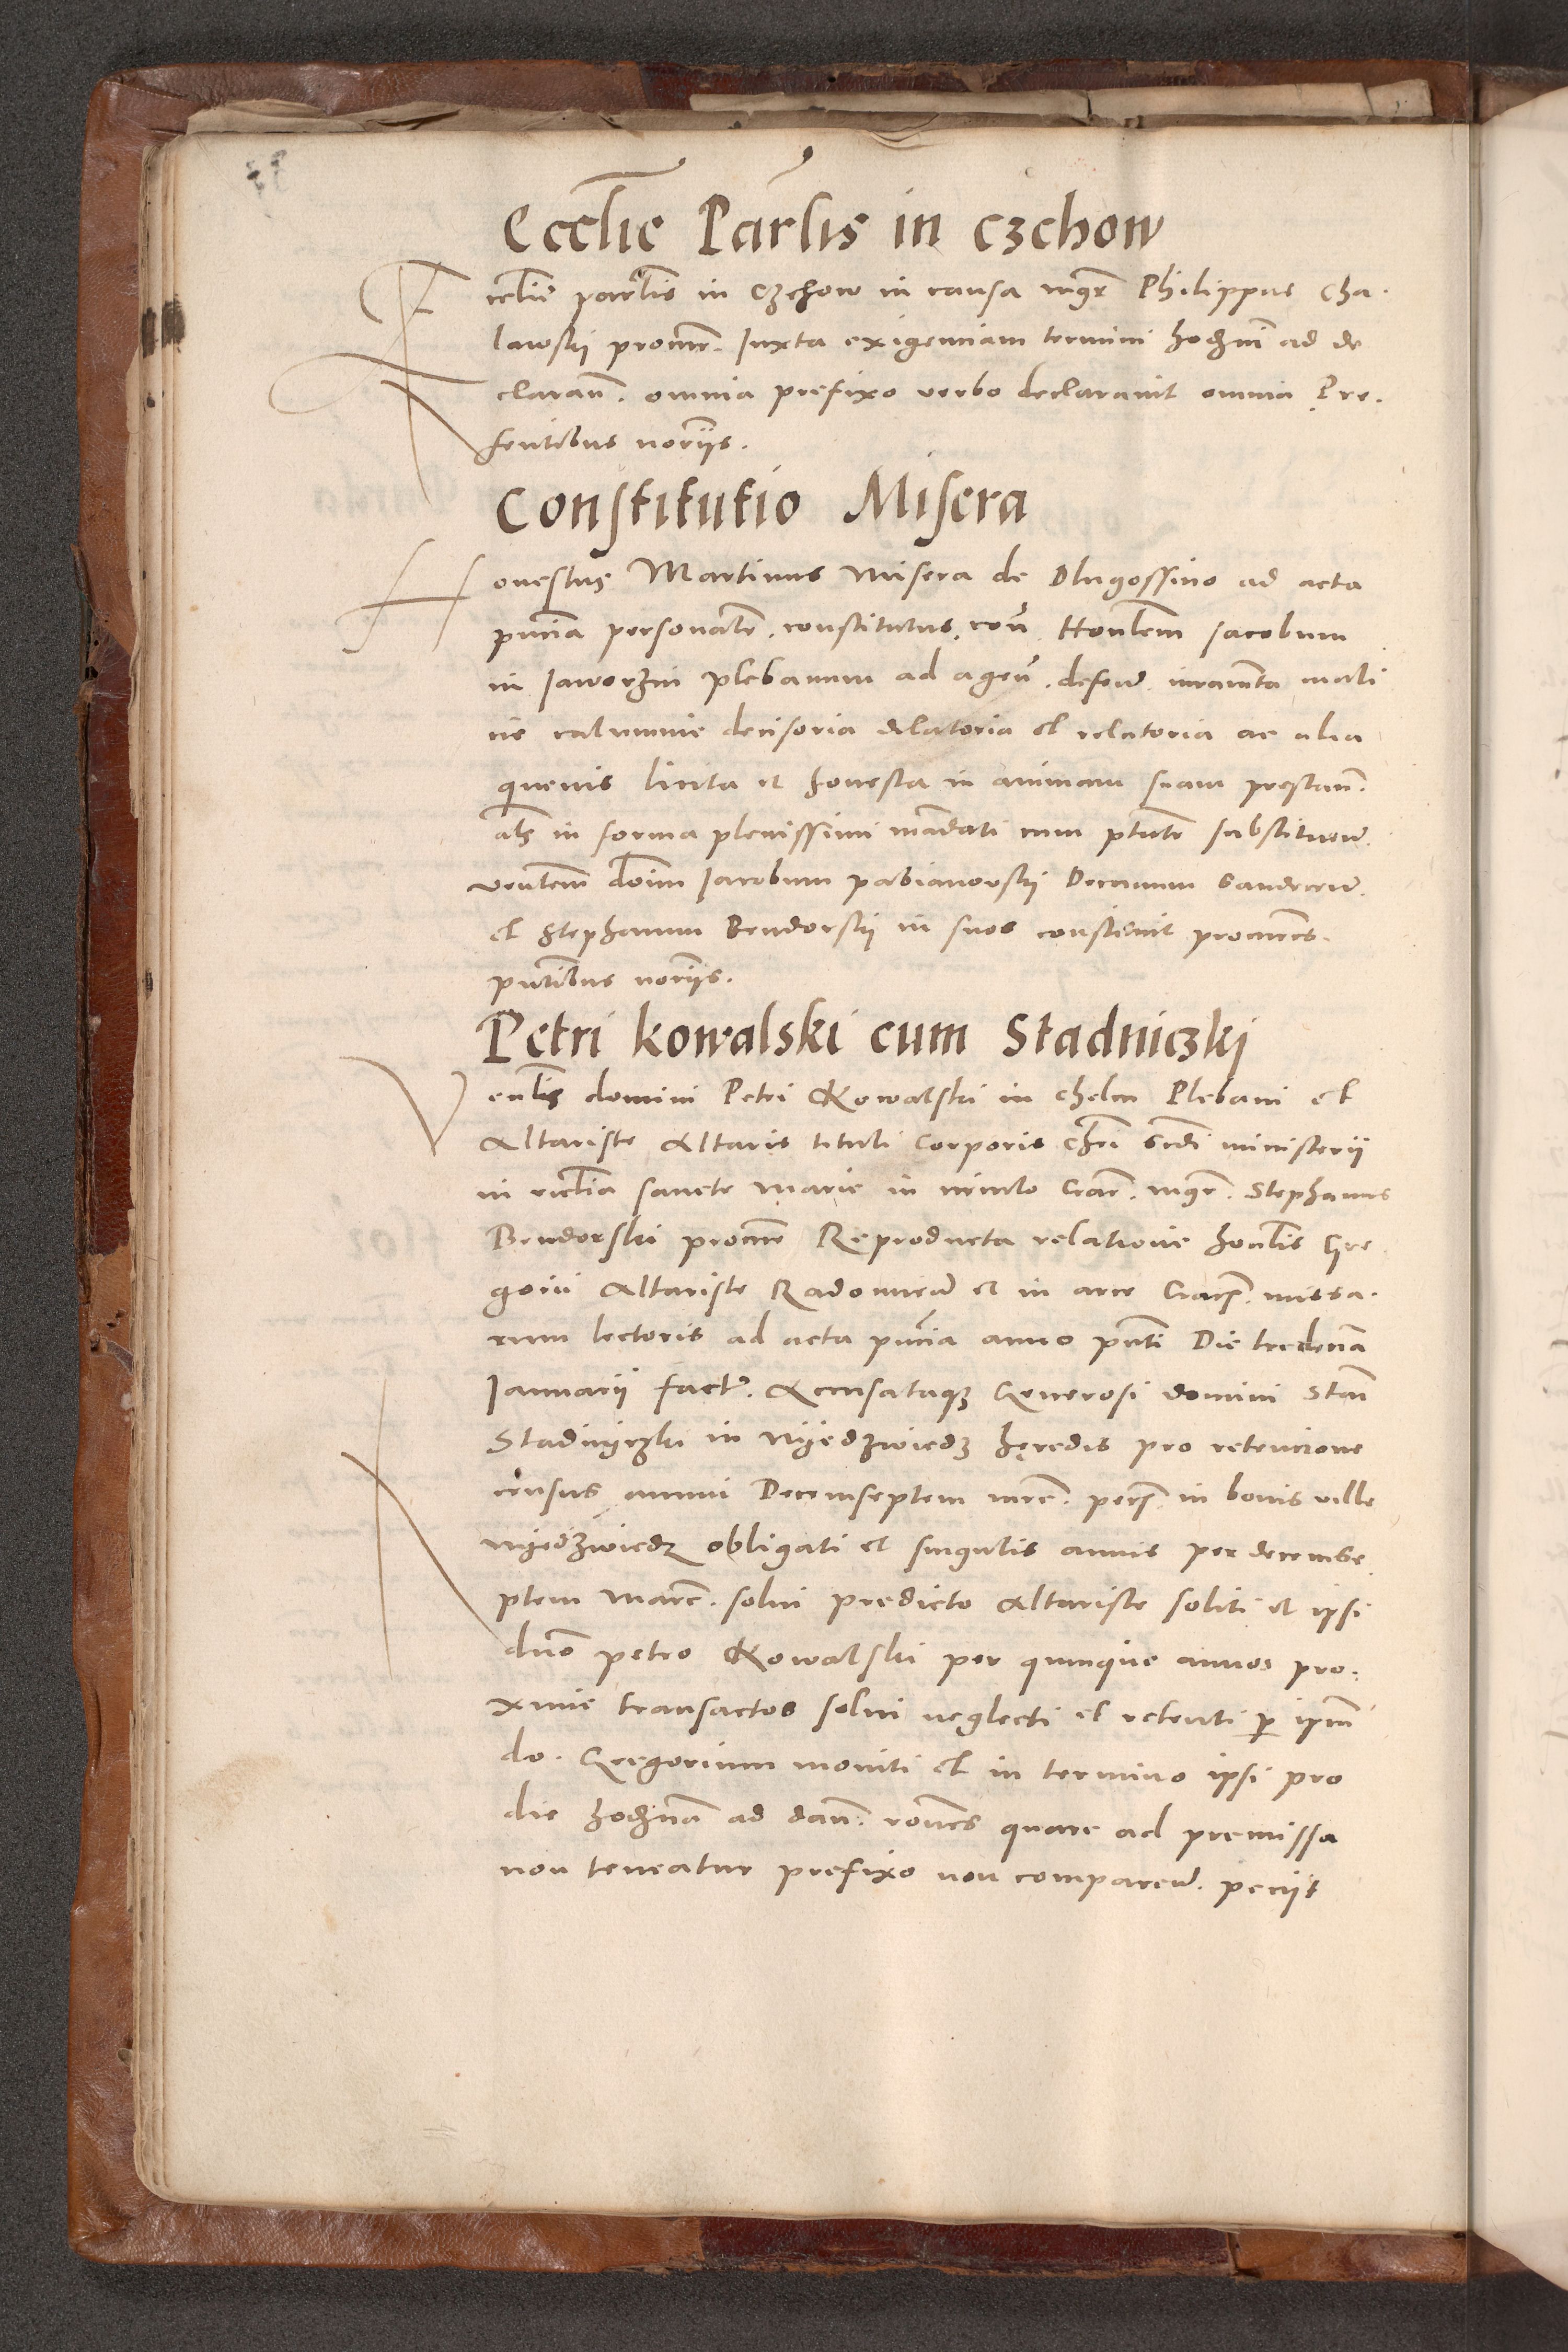 Eccl̄ie Parl̄is in czchow
Eccl̄ie parl̄is in Czchow in causa mḡr Philippus Cha-
lawskij procur̄. Iuxta exigenciam termini hodierni ad de
claran̄. omnia prefixo verbo declarauit omnia Pre-
sentibus norīis.
Constitutio Misera
Honestus Martinus Misera de Dlugossino ad acta
pn̄cia personalr̄. constitutus. con̄. Honl̄em Jacobum
in Jaworzin plebanum ad agen̄. defen̄. iuramta mali
cie calumnie decisoria dilatoria et relatoria ac alia
queuis licita et honesta in animam suam prestan̄.
al̄s in forma plenissimi man̄dati cum ptāte substituen̄.
Venl̄em dn̄m Jacobum pabianovskij Decanum Sandecen̄.
et Stephanum Bendorskij in suos constituit procur̄es.
pn̄tibus norīis.
Petri kowalski cum Stadniczkj
Venl̄is domini Petri Kowalski in Chelm Plebani et
Altariste Altaris tituli Corporis Chrī Scd̄i ministerii
in eccl̄ia sancte Marie in circulo Crac̄. mḡr. Stephanus
Bendorski procur̄ Reproducta relatione honl̄is Gre
gorii Altariste Radomien̄ et in arce Crac̄. missa-
rum lectoris ad acta pn̄cia anno pn̄ti Die tredecīa
Januarij fact̄. Accusataqȝ Generosi domini Stan̄
Stadnyczki in Nyedzwiedz heredis pro retencione
census annui Decemseptem mrc̄. pecc̄. in bonis ville
nyedzwiedz obligati et singulis annis per decemse
ptem marc̄. solui predicto Altariste soliti et ipsi
dn̄o petro Kowalski per quinque annos pro-
xime transactos solui neglecti et retenti ꝑ ipm̄
do. Gregorium moniti et in termino ipsi pro
die hodierna ad dan̄. ron̄es quare ad premissa
non teneatur prefixo non comparen̄. peciit